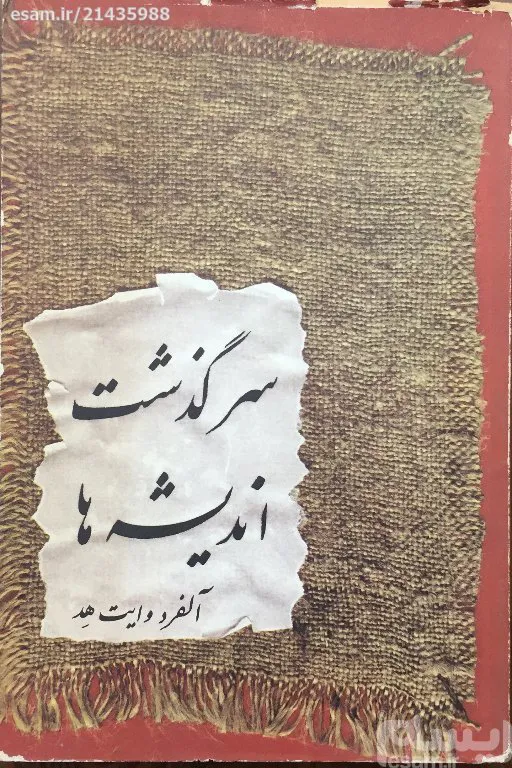 esam.ir/21435988
سرگذشت
اندیشه ها
آلفرد وایت هِد
ایسام
esam.ir